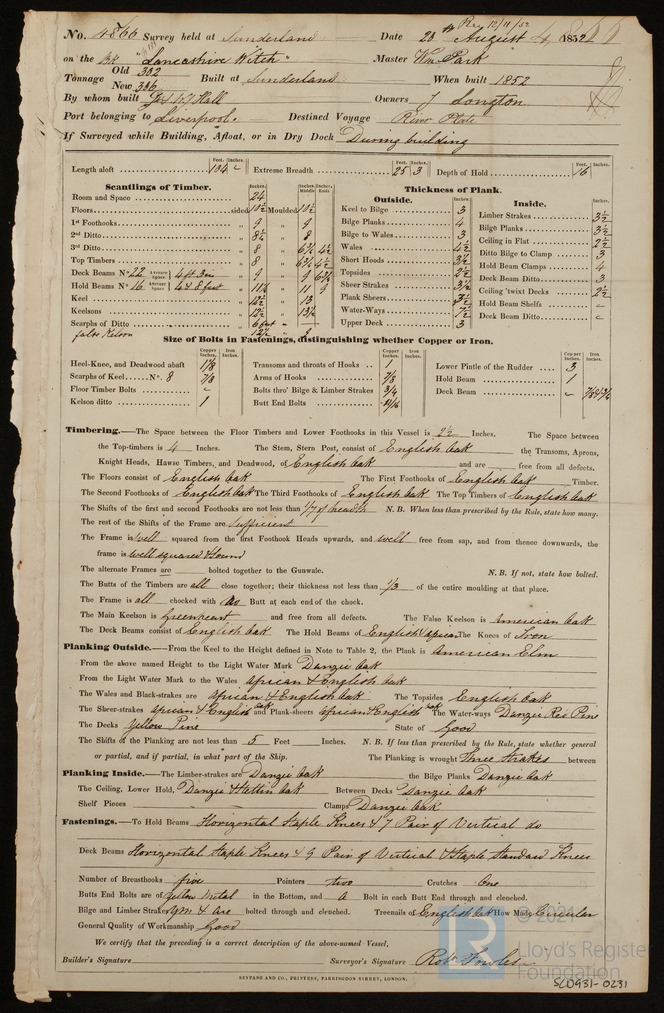 Rec 12/11/52
No. 4866 Survey held at Sunderland Date 28th August 1852
on the Bk "Lancashire Witch" Master Wm. Park
Tonnage Old 302 New 386 Built at Sunderland When built 1852
By whom built Hall Owners J Longton
Port belonging to Liverpool. Destined Voyage River Plate
If Surveyed while Building, Afloat, or in Dry Dock During building
Feet. Inches. Feet. Inches. Feet. Inches.
Length aloft 104 Extreme Breadth 25 3 Depth of Hold 16
Scantlings of Timber.
Inches. Inches. Middle Inches. Ends
Room and Space 24
Floors sided 10½ Moulded 10½
1st Foothooks 9 " 9
2nd Ditto 8½ " 8
3rd Ditto 8 " 6½ 4½
Top Timbers 8 " 6½ 4½
Deck Beams No. 22 Average Space 4 ft 3in 9 " 9 6½
Hold Beams No. 16 Average Space 4 & 8 feet 11½ " 11 9
Keel 12½ " 13
Keelsons 12½ " 13½
Scarphs of Ditto 6 feet "
false Kelson 12½ "
Thickness of Plank.
Outside. Inches.
Keel to Bilge 3
Bilge Planks 4
Bilge to Wales 3
Wales 4½
Short Hoods 3½
Topsides 2½
Sheer Strakes 3½
Plank Sheers
Water-Ways
Upper Deck 3
Inside. Inches.
Limber Strakes 3½
Bilge Planks 3½
Ceiling in Flat 2½
Ditto Bilge to Clamp 3
Hold Beam Clamps 4
Deck Beam Ditto 3
Ceiling 'twixt Decks 2½
Hold Beam Shelfs –
Deck Beam Ditto
Size of Bolts in Fastenings, distinguishing whether Copper or Iron.
Copper Inches. Iron Inches. Copper Inches. Iron Inches. Copper Inches. Iron Inches.
Heel-Knee, and Deadwood abaft 1⅛
Scarphs of Keel No. 8 7/8
Floor Timber Bolts –
Kelson ditto 1
Transoms and throats of Hooks 1
Arms of Hooks 7/8
Bolts thro' Bilge & Limber Strakes 3/4
Butt End Bolts 11/16
Lower Pintle of the Rudder 3
Hold Beam 1
Deck Beam – 7/8 & 3/4
Timbering.—The Space between the Floor Timbers and Lower Foothooks in this Vessel is 2½ Inches. The Space between
the Top-timbers is 4 Inches. The Stem, Stern Post, consist of English Oak the Transoms, Aprons,
Knight Heads, Hawse Timbers, and Deadwood, of English Oak and are free from all defects.
The Floors consist of English Oak The First Foothooks of English Oak Timber.
The Second Foothooks of English Oak The Third Foothooks of English Oak The Top Timbers of English Oak
The Shifts of the first and second Foothooks are not less than 1/7 of breadth N. B. When less than prescribed by the Rule, state how many.
The rest of the Shifts of the Frame are sufficient
The Frame is well squared from the first Foothook Heads upwards, and well free from sap, and from thence downwards, the
frame is well squared & sound
The alternate Frames are bolted together to the Gunwale. N. B. If not, state how bolted.
The Butts of the Timbers are all close together; their thickness not less than 1/3 of the entire moulding at that place.
The Frame is all chocked with Butt at each end of the chock.
The Main Keelson is Greenheart and free from all defects. The False Keelson is American Oak
The Deck Beams consist of English Oak The Hold Beams of English & African The Knees of Iron
Planking Outside.—From the Keel to the Height defined in Note to Table 2, the Plank is American Elm
From the above named Height to the Light Water Mark Danzic Oak
From the Light Water Mark to the Wales African & English Oak
The Wales and Black-strakes are African & English Oak The Topsides English Oak
The Sheer-strakes African & English Oak and Plank-sheers African & English Oak The Water-ways Danzic Red Pine
The Decks Yellow Pine State of Good
The Shifts of the Planking are not less than 5 Feet Inches. N. B. If less than prescribed by the Rule, state whether general
or partial, and if partial, in what part of the Ship. The Planking is wrought Three Strakes between
Planking Inside.—The Limber-strakes are Danzic Oak the Bilge Planks Danzic Oak
The Ceiling, Lower Hold, Danzic & Stettin Oak Between Decks Danzic Oak
Shelf Pieces Clamps Danzic Oak
Fastenings.—To Hold Beams Horizontal Staple Knees & 7 Pair of Vertical do
Deck Beams Horizontal Staple Knees & 9 Pair of Vertical & Staple Standard Knees
Number of Breasthooks five Pointers two Crutches One
Butts End Bolts are of Yellow Metal in the Bottom, and A Bolt in each Butt End through and clenched.
Bilge and Limber Strakes YM & are bolted through and clenched. Treenails of English Oak How Made Circular
General Quality of Workmanship Good
We certify that the preceding is a correct description of the above-named Vessel,
Builder's Signature Surveyor's Signature
SEYFANG AND CO., PRINTERS, FARRINGDON STREET, LONDON.
© 2021
LR
Lloyd's Register
Foundation
SLD931-0231